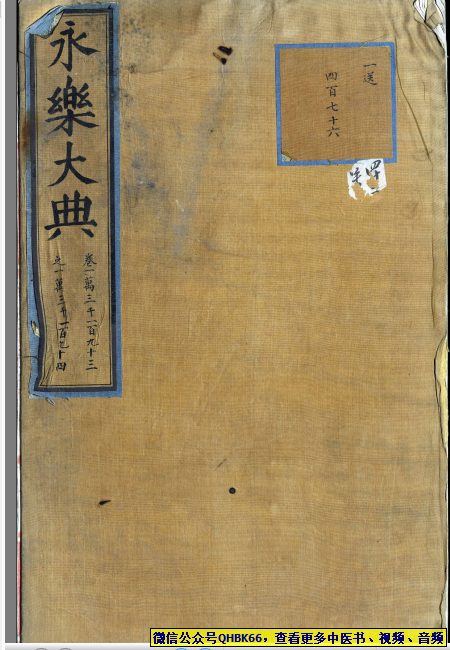 永樂大典
卷一萬三千一百九十三
之一萬三千一百九十四
一送
四百七十六
微信公众号QHBK66，查看更多中医书、视频、音频